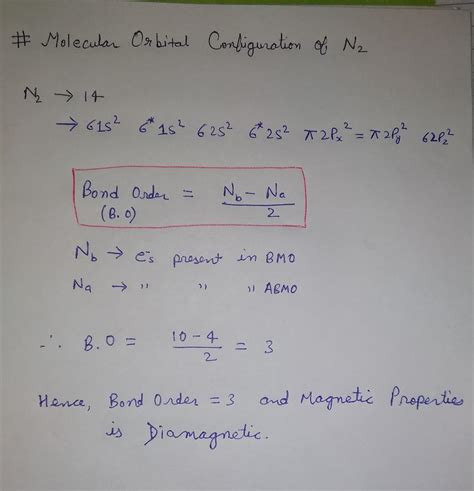 # Molecular Orbital Configuration of N₂
N₂ → 14
→ σ1s² σ*1s² σ2s² σ*2s² π2Pₓ² = π2Pᵧ² σ2P_z²
Bond Order = (N_b - N_a)/2
(B.O)
N_b → e⁻s present in BMO
N_a → " " " ABMO
∴ B.O = (10-4)/2 = 3
Hence, Bond Order = 3 and Magnetic Properties
is Diamagnetic.